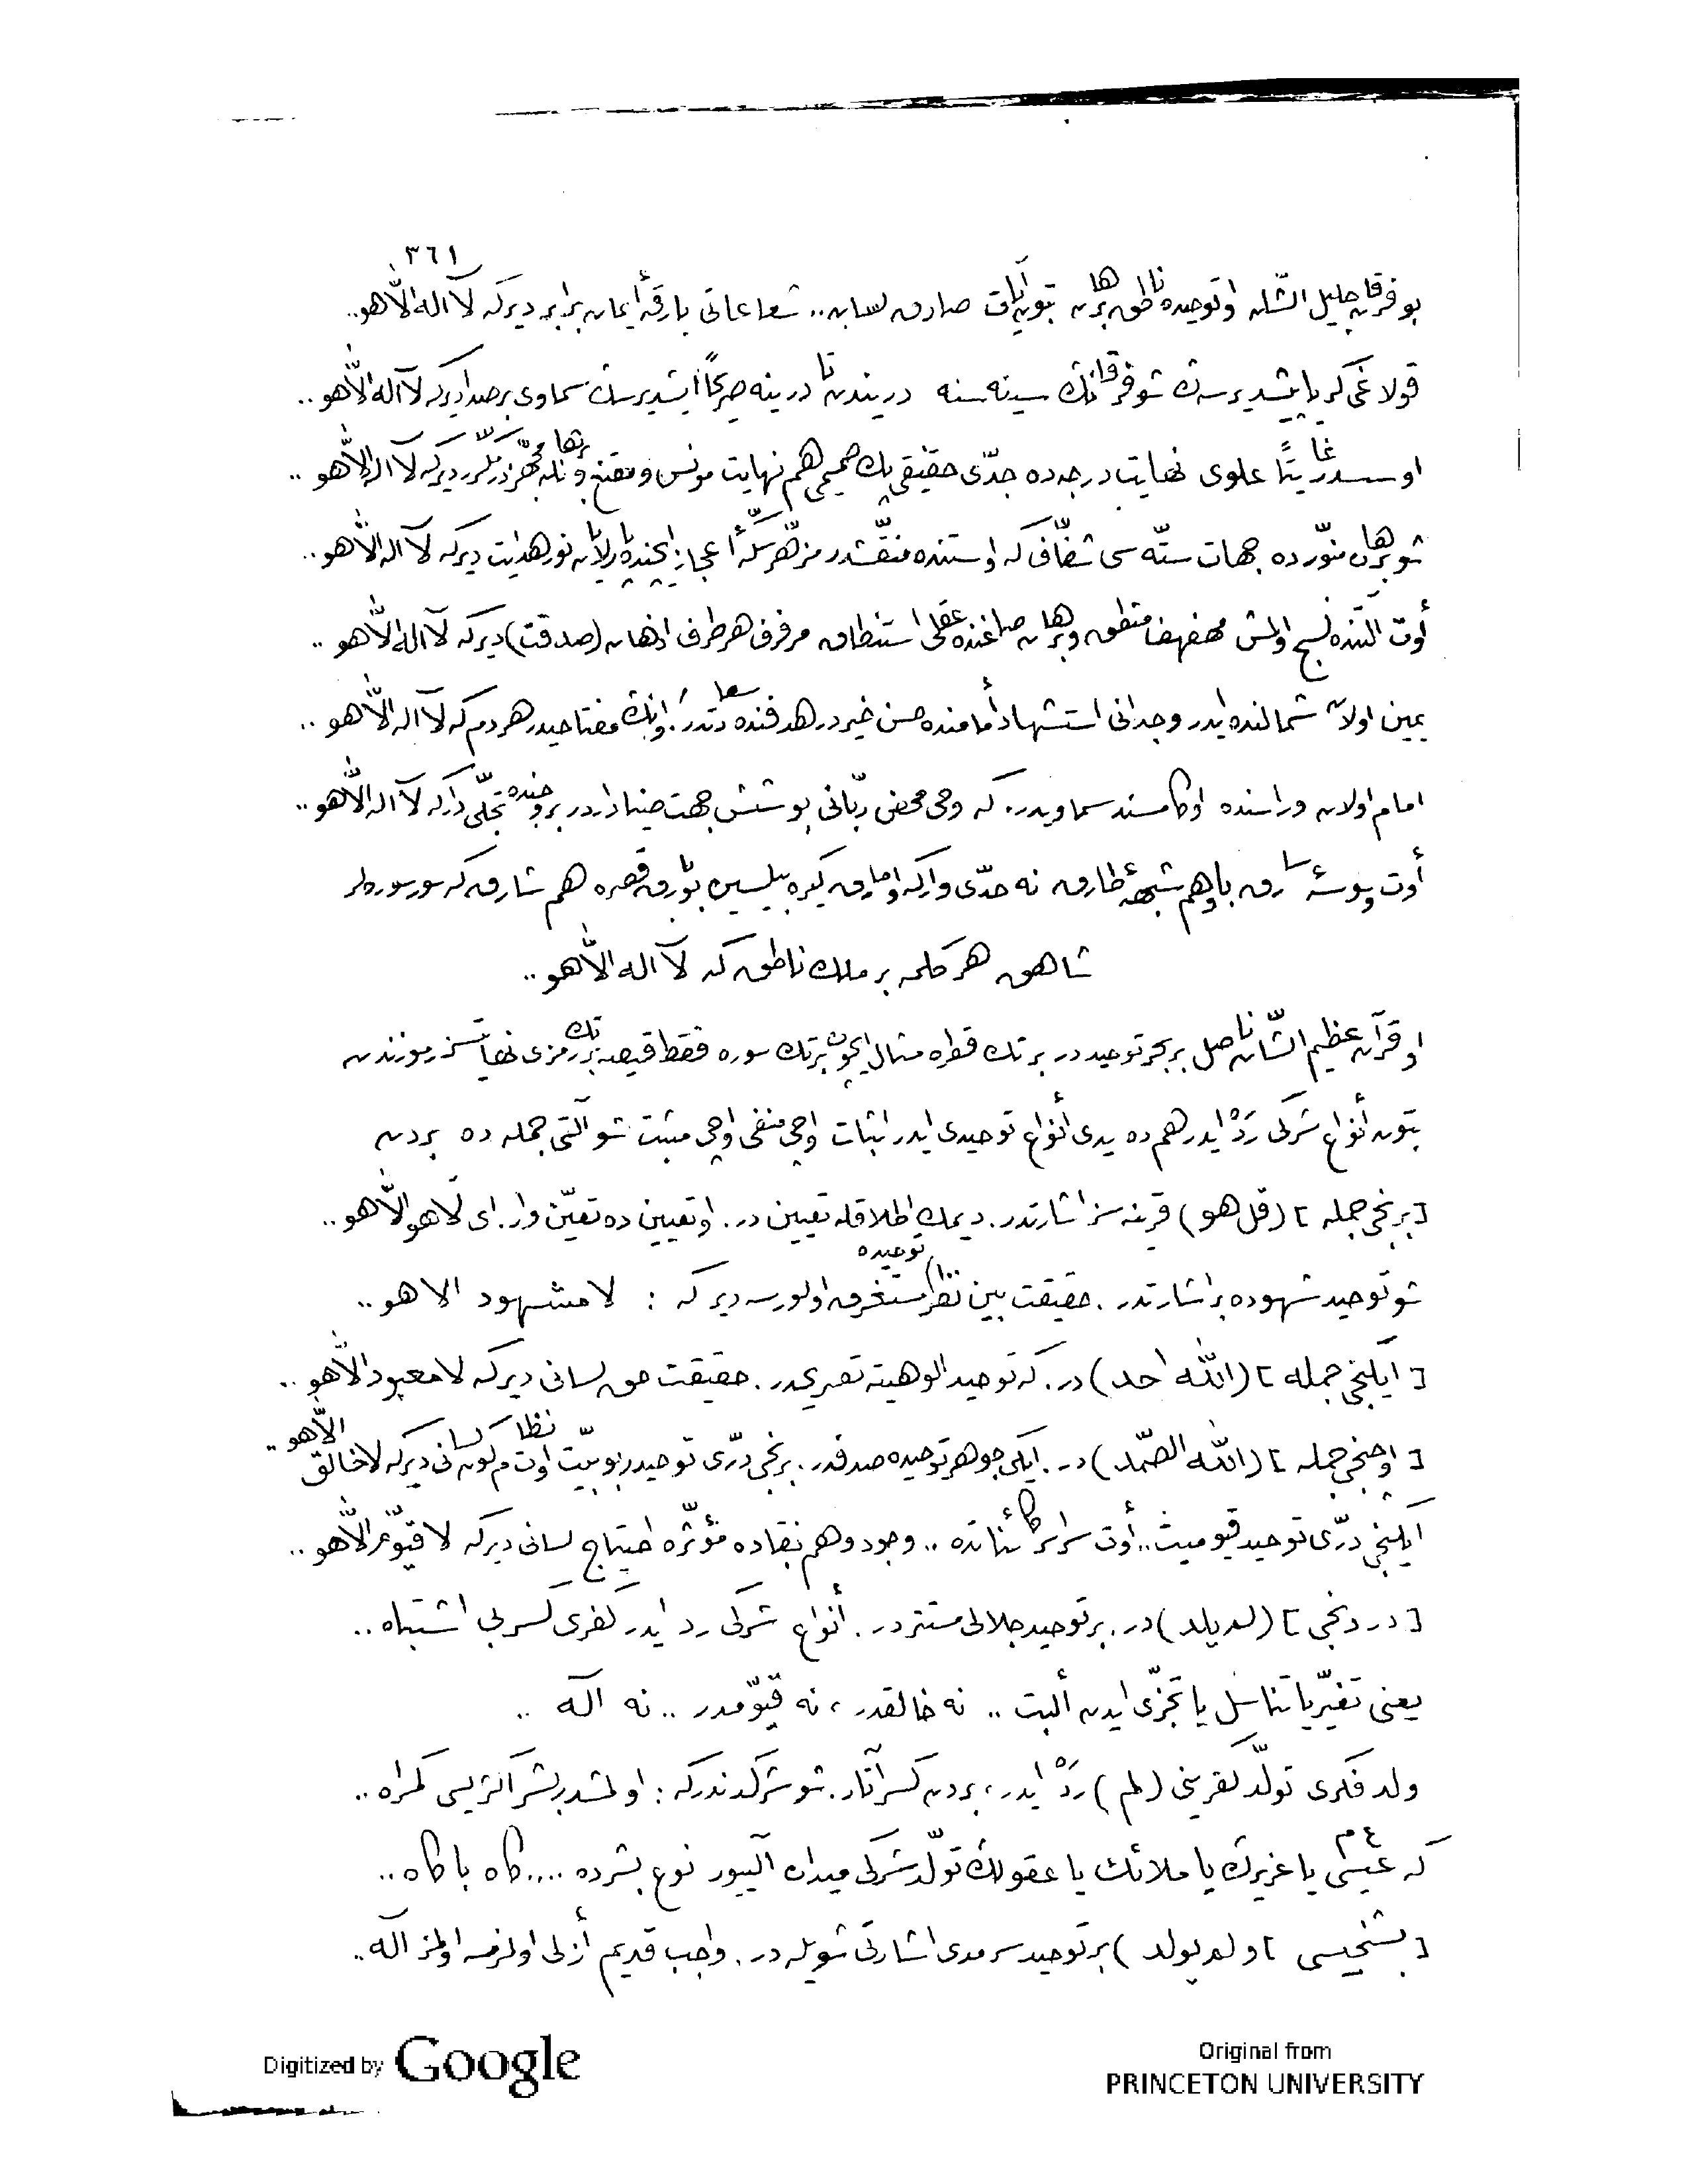 ٣٦١
بو فرقان جليل الشّان او توحيده ناطق برهان بتون آيات صادق لسان.. شعاعاتى بارقۀ ايمان برابر ديركه لآ اله الاّ هو..
قولاغى كر ياپيشديرسه‌ڭ شو فرقانڭ سينه‌سنه دريندن تا درينه صريحاً ايشديرسڭ سماوى بر صدا ديركه لآ اله الاّ هو..
او سسدر غايتاً علوى نهايت درجه‌ده جدّى حقيقى پك صميمى هم نهايت مونس و مقنع و برهانله مجهّزدر مكرر ديركه لآ اله الاّ هو..
شو برهان منوّرده جهات ستّه‌سى شفّاف كه اوستنده منقّشدر مزهّر سكّۀ اعجاز ايچنده پارلايان نور هدايت ديركه لآ اله الاّ هو..
أوت آلتنده نسج اولمش مهفهف منطق و برهان صاغنده عقلى استنطاق مرفرف هر طرف اذهان (صدقت) ديركه لآ اله الاّ هو..
يمين اولان شمالنده ايدر وجدانى استشهاد أمامنده حسن خيردر هدفنده سعادتدر. اونڭ مفتاحيدر هر دم كه لآ اله الاّ هو..
امام اولان وراسنده اوكا مسند سماويدر. كه وحى محض ربّانى بو شش جهت ضيادار در بروجنده تجلّى داركه لآ اله الاّ هو..
أوت وسوسۀ سارق با وهم شبهۀ طارق نه حدّى واركه او مارق كيره بيلسين بو بارق قصره هم شارق كه سور سوره‌لر
شاهق هر كلمه بر ملك ناطق كه لآ اله الاّ هو..
او قرآن عظيم الشّان ناصل بر بحر توحيددر بر تك قطره مثال ايچون بر تك سوره فقط قيصه بر تك رمزى نهايتسز رموزندن
بتون أنواع شركى ردّ ايدر هم ده يدى أنواع توحيدى ايدر اثبات اوچى منفى اوچى مثبت شو آلتى جمله ده بردن
[برنجى جمله] (قل هو) قرينه‌سز اشارتدر. ديمك اطلاقله تعيين در. او تعيين ده تعيّن وار. اى لا هو الاّ هو..
شو توحيد شهوده بر اشارتدر. حقيقت بين نظر توحيده مستغرق اولورسه ديركه : لا مشهود الا هو..
[ايكنجى جمله] (اللّٰه احد) در. كه توحيد الوهيته تصريحدر. حقيقت حق لسانى ديركه لا معبود الاّ هو..
[اوچنجى جمله] (اللّٰه الصّمد) در. ايكى جوهر توحيده صدفدر. برنجى درّى توحيد ربوبيّت أوت نظام كون لسانى ديركه لا خالق الاّ هو..
ايكنجى درّى توحيد قيوميت.. أوت سراسر كائناتده.. وجود وهم بقاده مؤثّره احتياج لسانى ديركه لا قيّوم الاّ هو..
[دردنجى] (لم يلد) در. بر توحيد جلالى مستتردر. أنواع شركى رد ايدر كفرى كسر بى اشتباه..
يعنى تغيّر يا تناسل يا تجزّى ايدن ألبت.. نه خالقدر، نه قيّومدر.. نه اله..
ولد فكرى تولّد كفرينى (لم) ردّ ايدر، بردن كسر آتار. شو شركدندركه : اولمشدر بشر اكثريسى كمراه..
كه عيسى ع م يا عزيرڭ يا ملائك يا عقولڭ تولّد شركى ميدان آليور نوع بشرده .... كاه با كاه..
[بشنجيسى] (ولم يولد) بر توحيد سرمدى اشارتى شويله در. واجب قديم أزلى اولمزسه اولمز اله..
Digitized by Google
Original from
PRINCETON UNIVERSITY